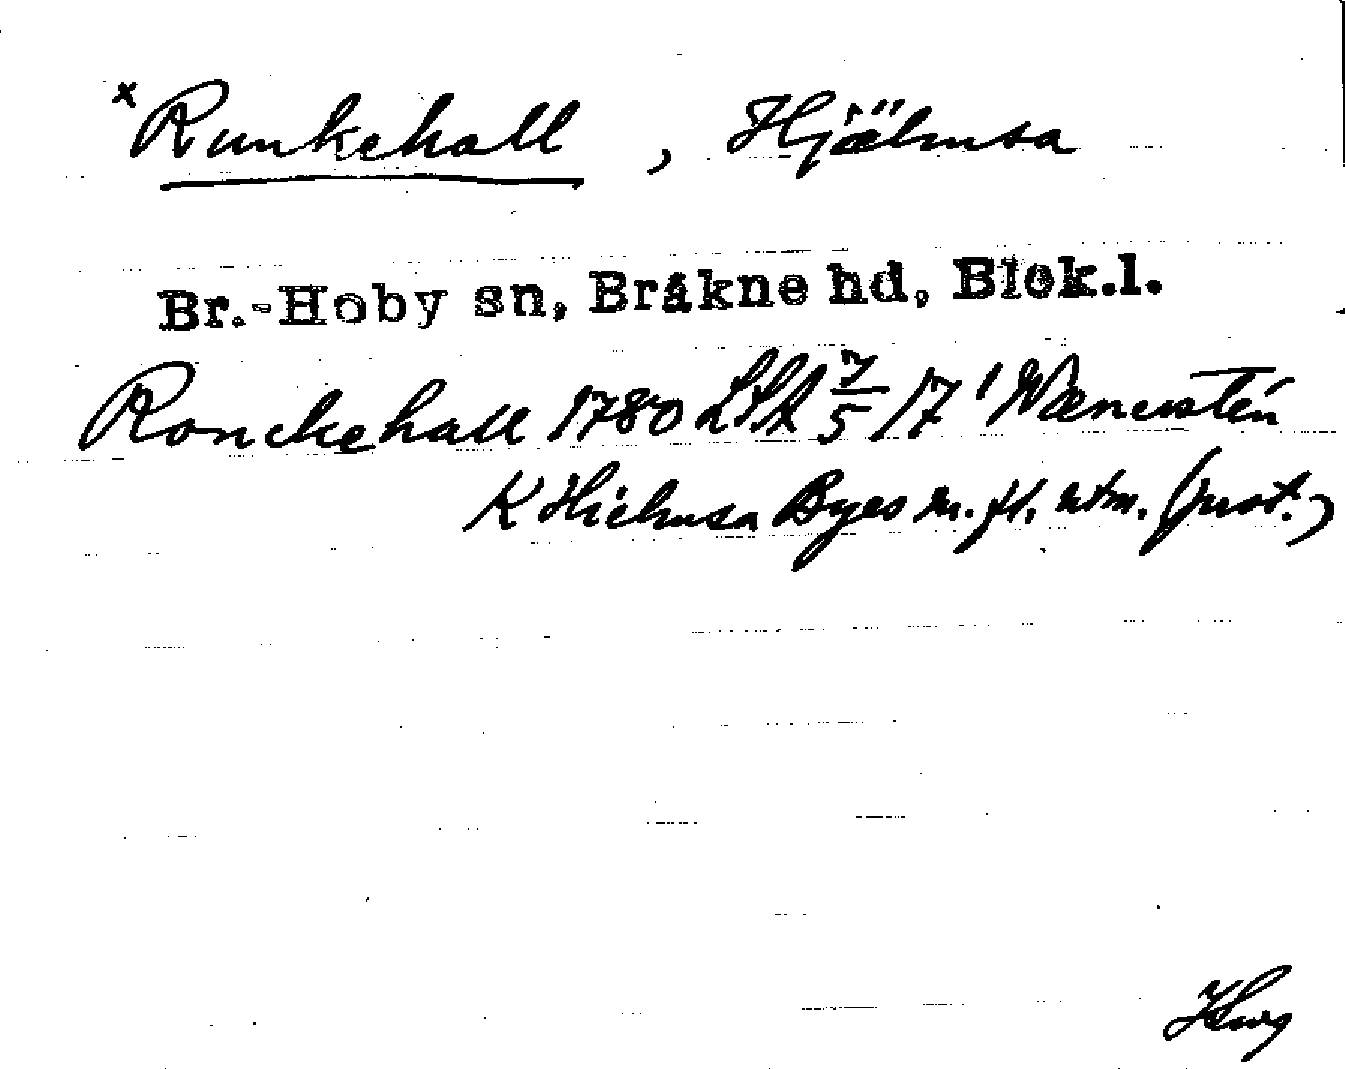 × Runkehall, Hjälmsa
Br.-Hoby sn, Bräkne hd, Blek.l.
Ronckehall 1780 LSA 7/5 17 Wænerstén
K Hielmsa Byes m. fl. utm. (prot.)